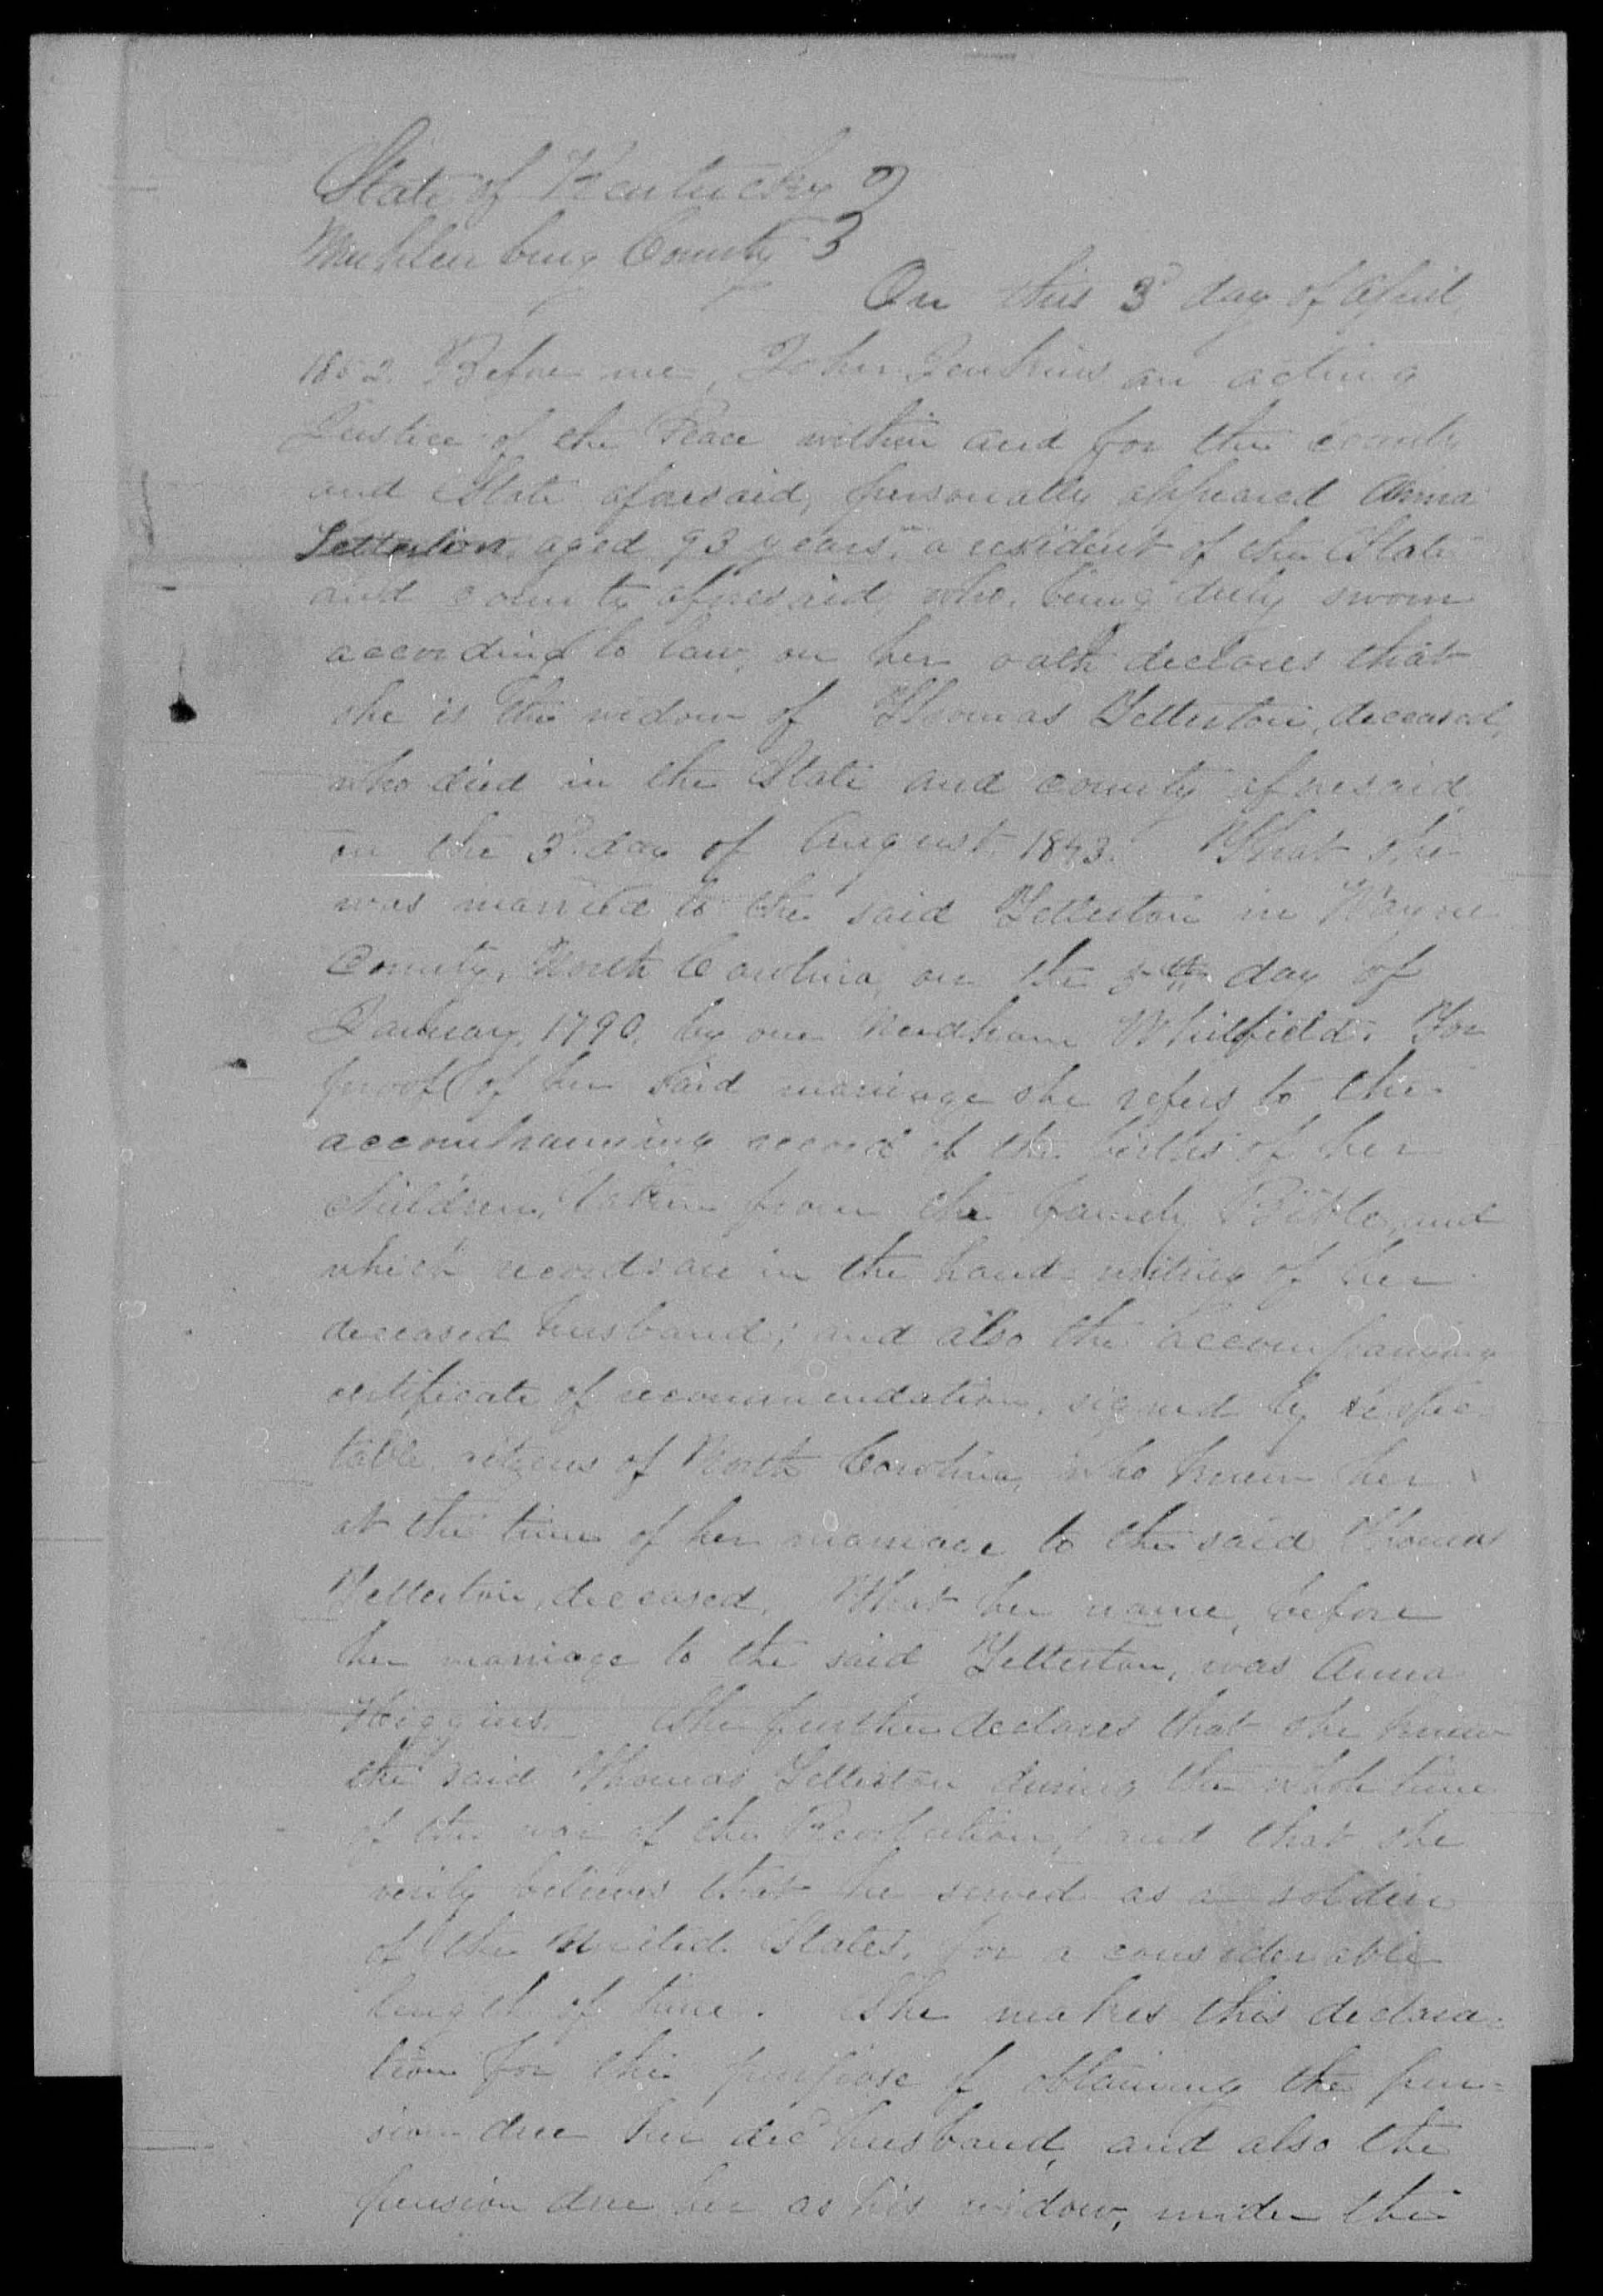 State of Kentucky }
Muhlenburg County }
On this 3d day of April,
1852. Before me, John Jenkins an acting
Justice of the Peace within and for the county
and State aforesaid, personally appeared Anna
aged 93 years, a resident of the State
and county aforesaid, who, being duly sworn
according to law, on her oath declares that
she is the widow of Thomas Yelterton, deceased,
who died in the State and county aforesaid
on the 3d day of August, 1843. That she
was married to the said Yelterton in Wayne
County, North Carolina, on the 5th day of
January, 1790, by one Needham Whitfield. For
proof of her said marriage she refers to the
accompanying record of the births of her
children, taken from the family Bible, and
which records are in the hand writing of her
deceased husband; and also the accompanying
certificate of recommendation, signed by respec-
table citizens of North Carolina, who knew her
at the time of her marriage to the said Thomas
Yelterton, deceased. That her name, before
her marriage to the said Yelterton, was Anna
Higgins. She further declares that she knew
the said Thomas Yelterton during the whole time
of the war of the Revolution, and that she
verily believes that he served as a soldier
of the United States, for a considerable
length of time. She makes this declara-
tion for the purpose of obtaining the pen-
sion due her decd husband, and also the
pension due her as his widow, under the